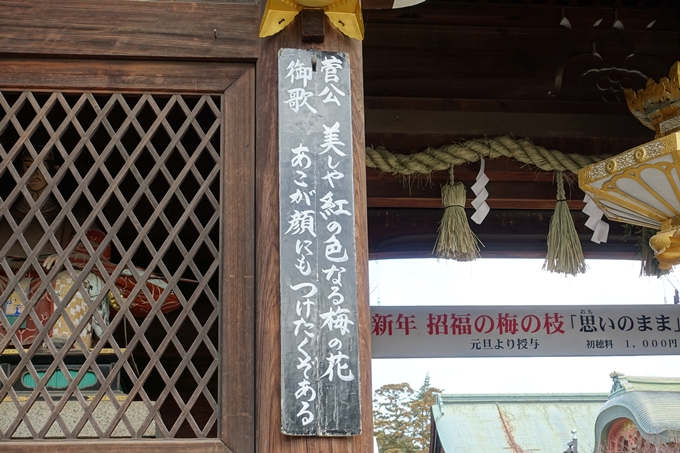 菅公
御歌
美しや紅の色なる梅の花
あこが顔にもつけたくぞある
新年 招福の梅の枝「思いのまま」
おも
元旦より授与
初穂料 1,000円